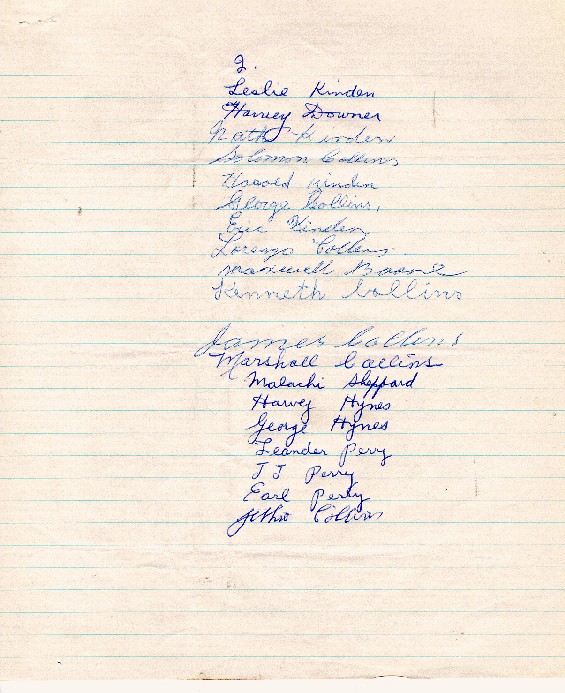 2.
Leslie Kinden
Harvey Downer
Nath Kinden
Solomon Collins
Harold Kinden
George Collins,
Eric Kinden
Lorenzo Collens
Maxwell Boone
Kenneth Collins
James Collens
Marshall Collins
Malachi Sheppard
Harvey Hynes
George Hynes
Leander Perry
J J Perry
Earl Perry
Collins